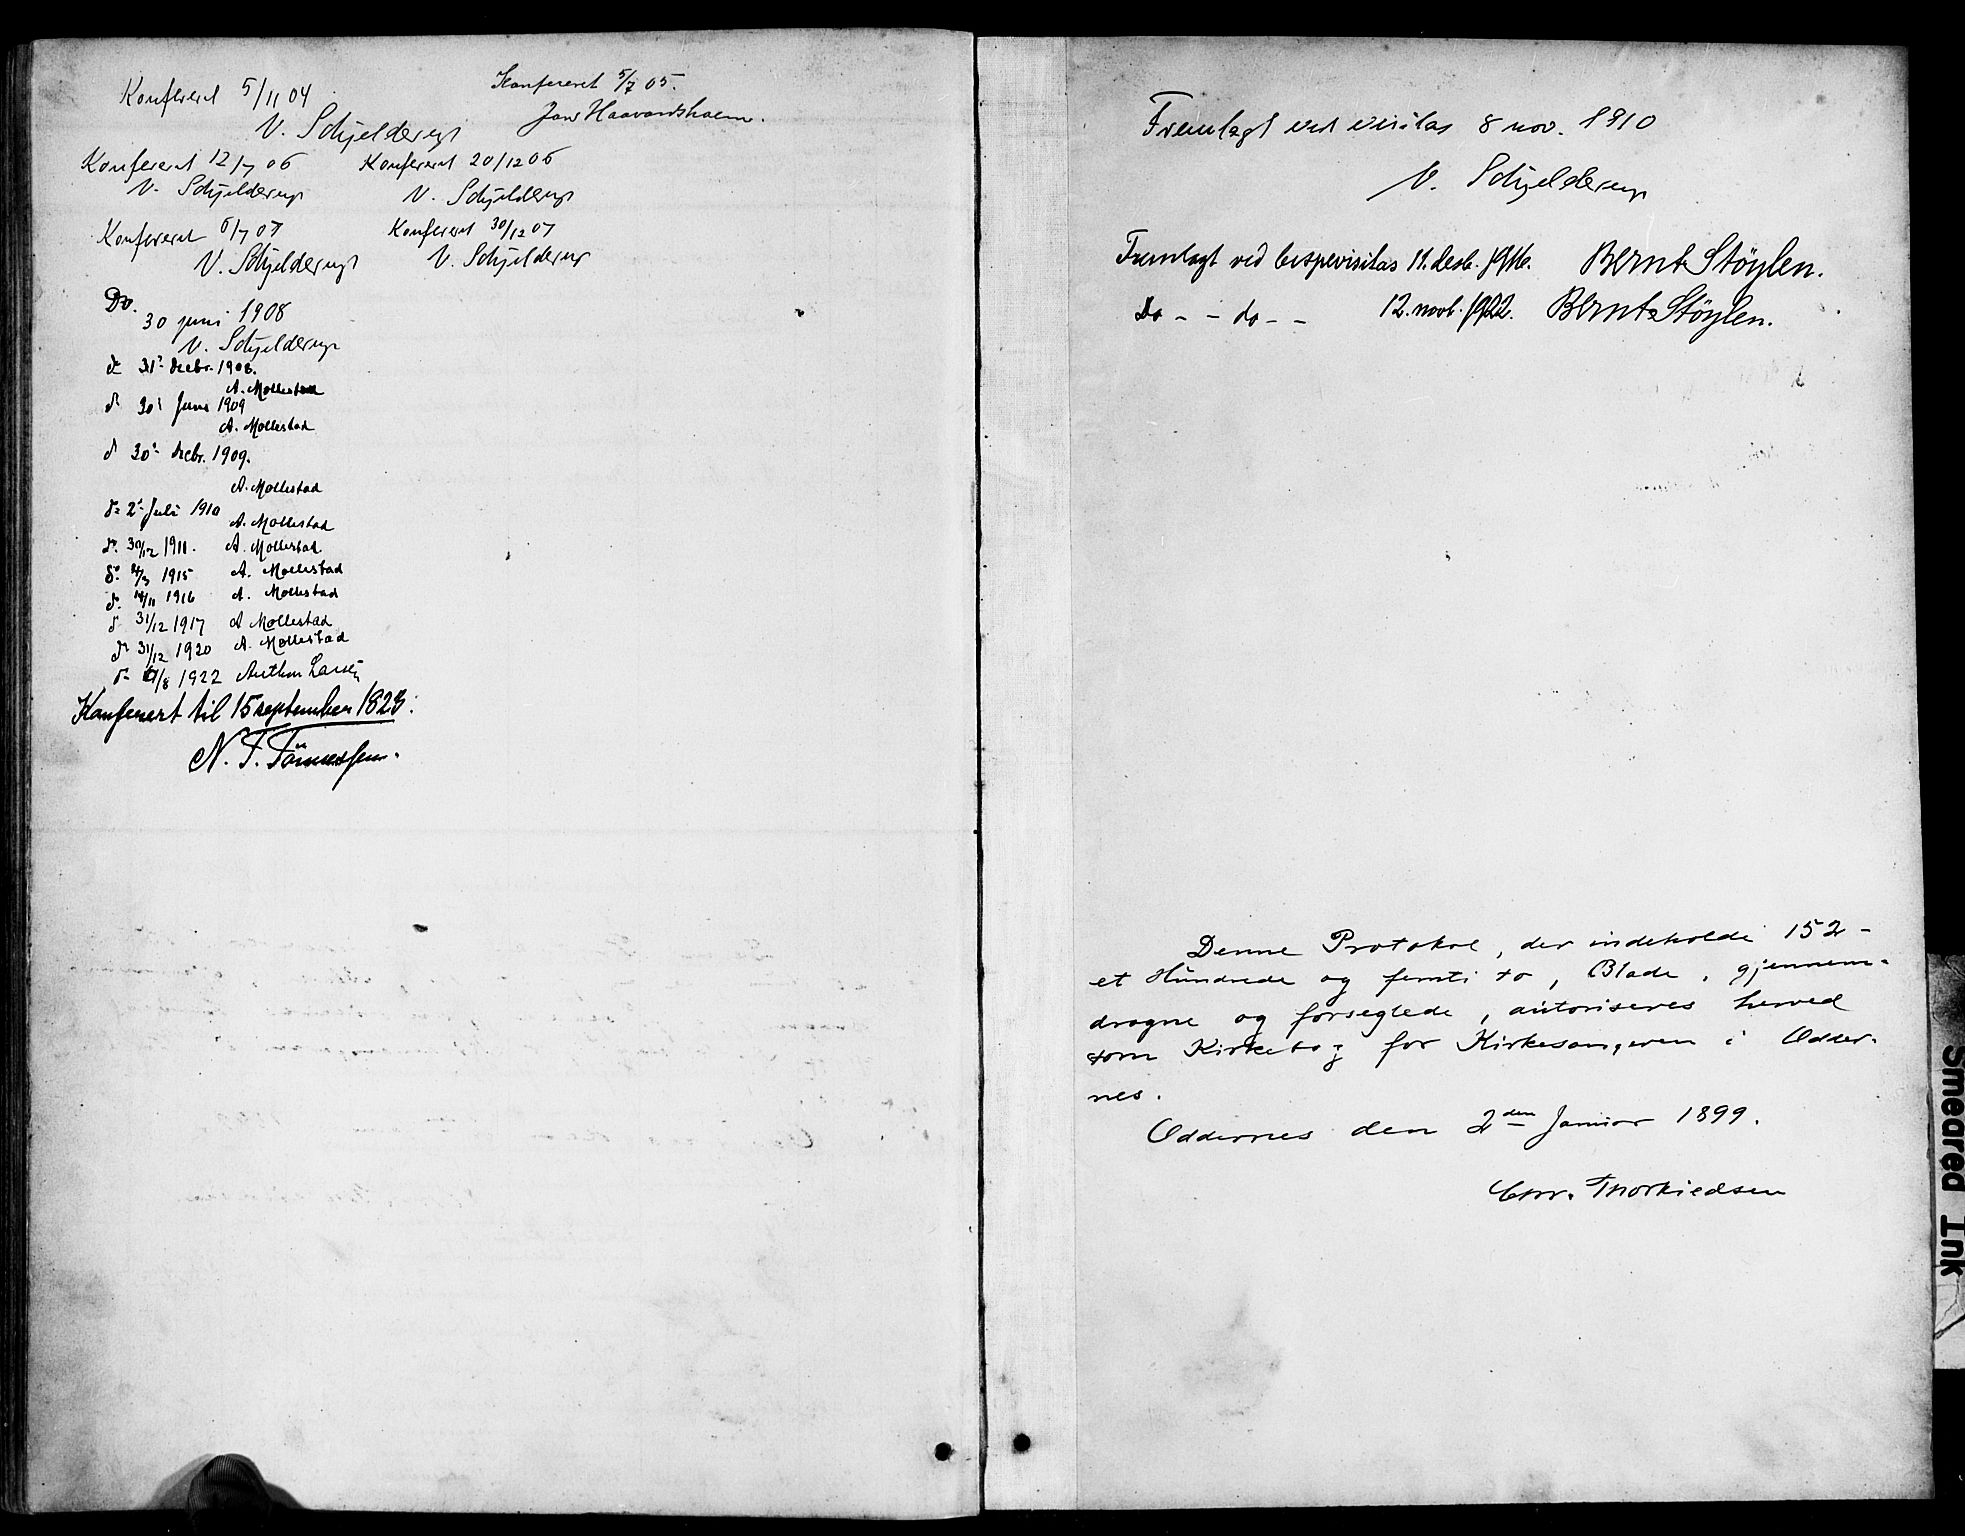 Konfereret 5/11 04
V. Schjelderup
Konfereret 5/7 05.
Jons Haavardsholm.
Konfereret 12/7 06
V. Schjelderup
Konfereret 20/12 06
V. Schjelderup
Konfereret 6/7 07
V. Schjelderup
Konfereret 30/12 07
V. Schjelderup
Do.
30 juni 1908
V. Schjelderup
do 31 decbr. 1908.
A. Mollestad
do 30 Juni 1909
A. Mollestad
do 30 decbr. 1909.
A. Mollestad
do 2 Juli 1910
A. Mollestad
do. 30/12 1911. A. Mollestad
do. /3 1915 A. Mollestad
do. 14/11 1916 A. Mollestad
do 31/12 1917 A Mollestad
do 31/12 1920 A. Mollestad
do /8 1922 Anthon Larsen
Konferert til 15 september 1823.
N. T. Tönnessen.
Fremlagt ved visitas 8 nov. 1910
V. Schjelderup
Fremlagt ved bispevisitas 11. desb. 1916. Bernt Støylen.
Do - - do - - 12. novb. 1922. Bernt Støylen.
Denne Protokol, der indeholde 152 -
et Hundrede og femti to, Blade, gjennem-
dragne og forseglede, autoriseres herved
som Kirkebog for Kirkesangeren i Odder-
nes.
Oddernes den 2den Januar 1899.
Chr. Thorkildsen
Smeared Ink